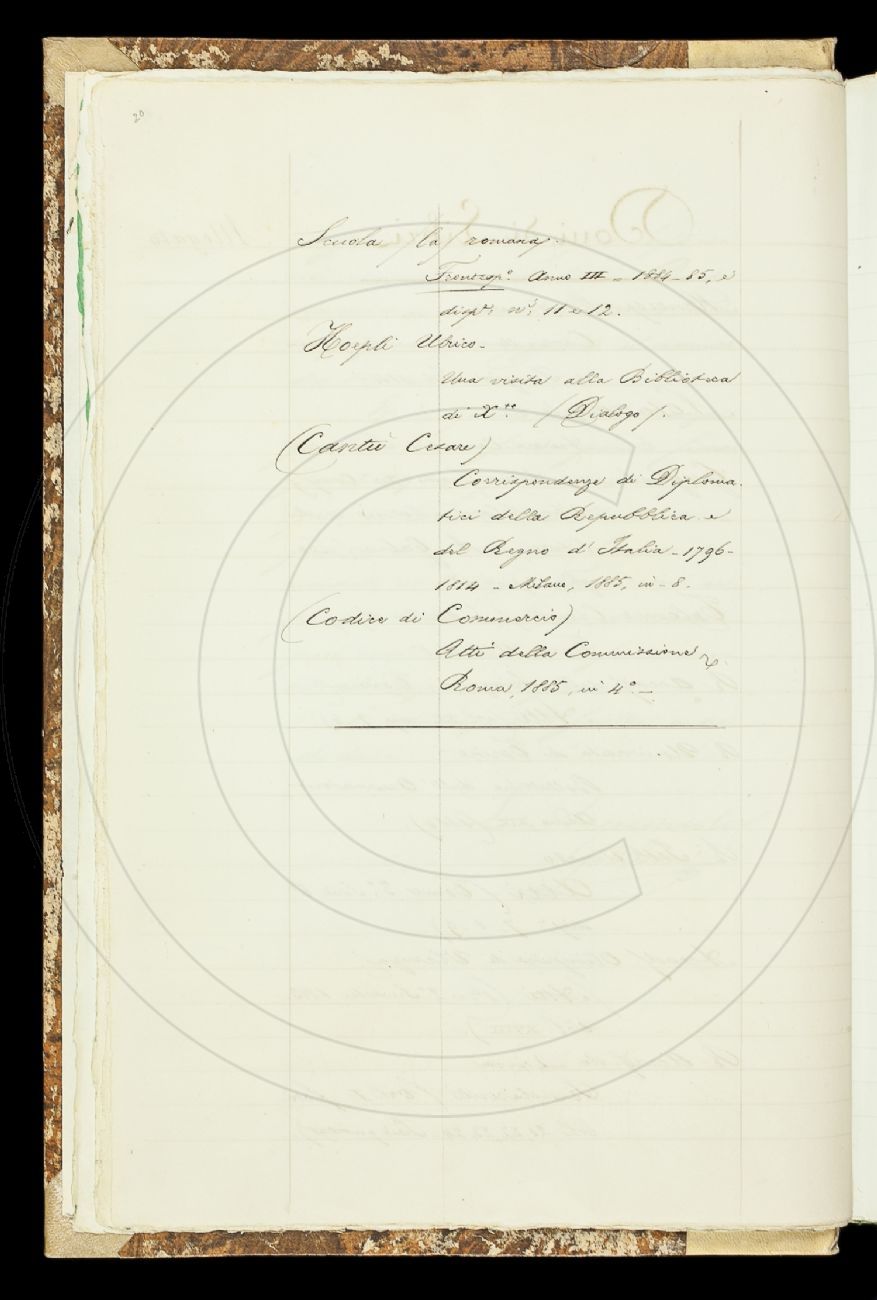 20
Scuola (la) romana.
Frontespº. Anno III - 1884-85, e
dispe. ni. 11 e 12.
Hoepli Ulrico.
Una visita alla Biblioteca
di X**. (Dialogo).
(Cantù Cesare)
Corrispondenze di Diploma-
tici della Repubblica e
del Regno d'Italia - 1796-
1814 - Milano, 1885, in-8.
(Codice di Commercio)
Atti della Commissione
Roma, 1885, in 4º. -